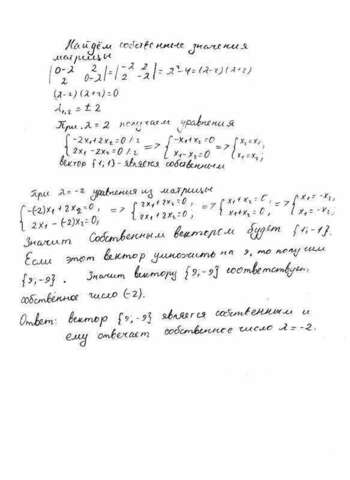 Найдём собственные значения
матрицы
|0-λ 2; 2 0-λ| = |-λ 2; 2 -λ| = λ²-4 = (λ-2)(λ+2)
(λ-2)(λ+2)=0
λ₁,₂ = ±2
При λ=2 получаем уравнения
{-2x₁+2x₂=0 /:2; 2x₁-2x₂=0 /:2 => {-x₁+x₂=0; x₁-x₂=0 => {x₁=x₂; x₁=x₂;
вектор {1,1} - является собственным
При λ=-2 уравнения из матрицы
{-(-2)x₁+2x₂=0; 2x₁-(-2)x₂=0; => {2x₁+2x₂=0; 2x₁+2x₂=0; => {x₁+x₂=0; x₁+x₂=0; => {x₁=-x₂; x₁=-x₂;
Значит собственным вектором будет {1,-1}
Если этот вектор умножить на 9, то получим
{9,-9}. Значит вектору {9,-9} соответствует
собственное число (-2).
Ответ: вектор {9,-9} является собственным и
ему отвечает собственное число λ=-2.